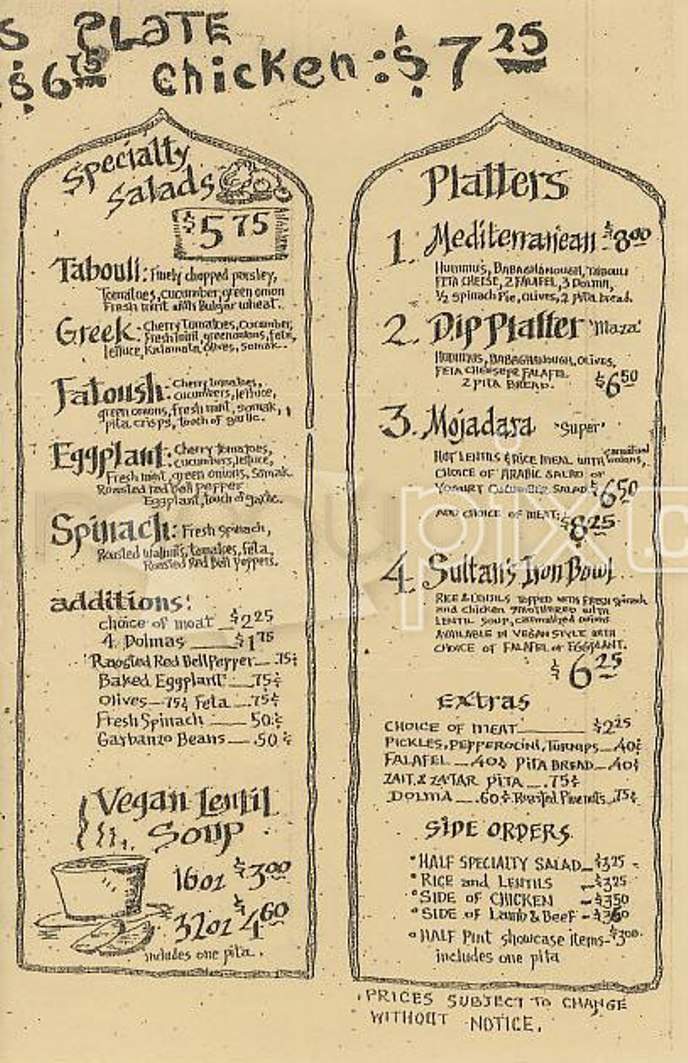 S PLATE
$6 75 Chicken: $7 25
Specialty
Salads
$5 75
Tabouli: Finely chopped parsley,
Tomatoes, cucumber, green onion
Fresh mint with Bulgar wheat.
Greek: Cherry Tomatoes, Cucumber,
Fresh mint, green onions, feta,
lettuce, Kalamata olives, Somak.
Fatoush: Cherry tomatoes,
cucumbers, lettuce,
green onions, fresh mint, somak,
pita crisps, touch of garlic.
Eggplant: Cherry tomatoes,
cucumbers, lettuce,
Fresh mint, green onions, Somak
Roasted red bell pepper
Eggplant, touch of garlic.
Spinach: Fresh Spinach,
Roasted walnuts, tomatoes, feta,
Roasted Red Bell Peppers.
additions:
choice of meat $2 25
4 Dolmas $1 75
Roasted Red Bell Pepper 75¢
Baked Eggplant .75¢
Olives 75¢ Feta .75¢
Fresh Spinach 50¢
Garbanzo Beans .50¢
Vegan Lentil
Soup
16oz $3 00
32oz $4 60
includes one pita.
Platters
1. Mediterranean $8 00
Hummus, BABAGHANOUGH, TABOULI
FETA CHEESE, 2 FALAFEL, 3 DOLMA,
½ Spinach Pie, olives, 2 pita bread.
2. Dip Platter "Maza"
HUMMUS, BABAGHANOUGH, OLIVES,
FETA CHEESE, 2 FALAFEL
2 PITA BREAD. $6 50
3. Mojadara "Super"
HOT LENTILS & RICE MEAL WITH carmalized onions,
CHOICE OF ARABIC SALAD or
YOGURT CUCUMBER SALAD $6 50
ADD CHOICE OF MEAT: $8 25
4. Sultan's Iron Bowl
RICE & LENTILS TOPPED WITH FRESH Spinach
and chicken smothered with
LENTIL SOUP, carmalized onions
AVAILABLE IN VEGAN STYLE WITH
CHOICE OF FALAFEL or EGGPLANT.
$6 25
Extras
CHOICE OF MEAT $2 25
PICKLES, PEPPEROCINI, TURNIPS .40¢
FALAFEL .40¢ PITA BREAD .40¢
ZAIT & ZA'TAR PITA .75¢
DOLMA .60¢ Roasted Pinenuts .75¢
SIDE ORDERS
• HALF SPECIALTY SALAD $3 25
• RICE and LENTILS $3 25
• SIDE OF CHICKEN - $3 50
• SIDE OF Lamb & Beef - $3 60
• HALF Pint showcase items - $3 00
includes one pita
. PRICES SUBJECT TO CHANGE
WITHOUT NOTICE.